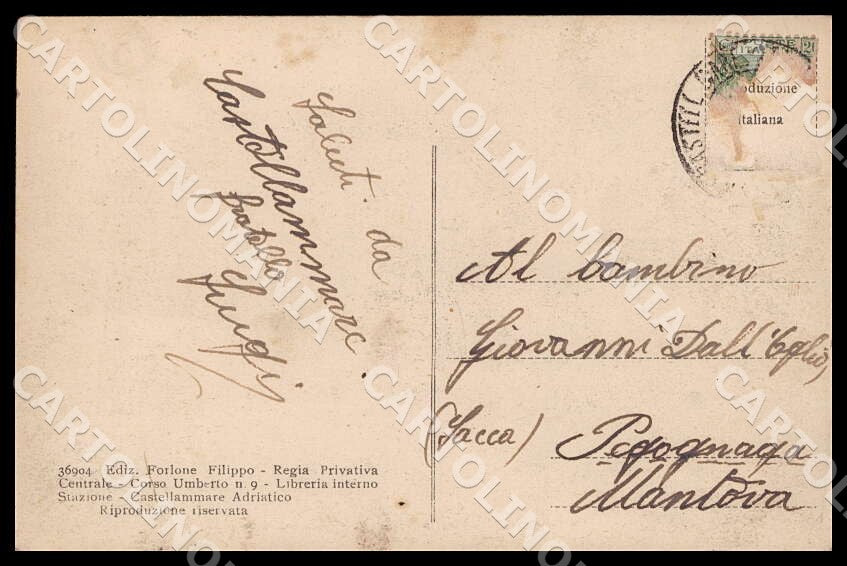 Saluti da
Castellammare
fratello
Luigi
36904 Ediz. Forlone Filippo - Regia Privativa
Centrale - Corso Umberto n. 9 - Libreria interno
Stazione - Castellammare Adriatico
Riproduzione riservata
oduzione
italiana
CASTELL
Al bambino
Giovanni Dall'Oglio
(Sacca) Pegognaga
Mantova
CARTOLINOMANIA
CARTOLINOMANIA
CARTOLINOMANIA
CARTOLINOMANIA
CARTOLINOMANIA